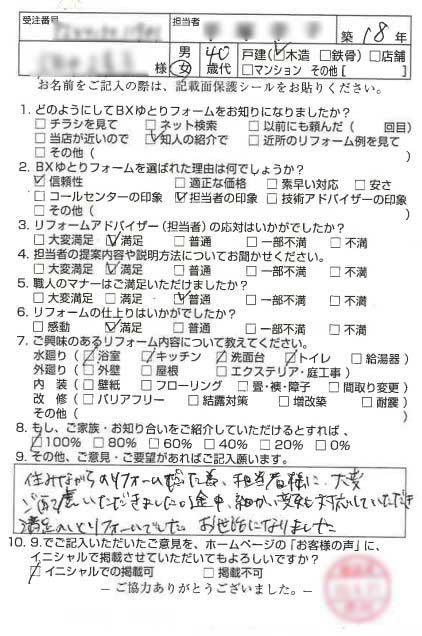 受注番号 担当者 築 18 年
様 男 女 40 歳代 戸建(☑木造 □鉄骨) □店舗
□マンション その他[ ]
お名前をご記入の際は、記載面保護シールをお貼りください。
1. どのようにしてBXゆとりフォームをお知りになりましたか?
□チラシを見て □ネット検索 □以前にも頼んだ( 回目)
□当店が近いので ☑知人の紹介で □近所のリフォーム例を見て
□その他( )
2. BXゆとりフォームを選ばれた理由は何でしょうか?
☑信頼性 □適正な価格 □素早い対応 □安さ
□コールセンターの印象 ☑担当者の印象 □技術アドバイザーの印象
□その他( )
3. リフォームアドバイザー(担当者)の応対はいかがでしたか?
□大変満足 ☑満足 □普通 □一部不満 □不満
4. 担当者の提案内容や説明方法についてお聞かせください。
□大変満足 ☑満足 □普通 □一部不満 □不満
5. 職人のマナーはご満足いただけましたか?
□大変満足 □満足 ☑普通 □一部不満 □不満
6. リフォームの仕上りはいかがでしたか?
□感動 ☑満足 □普通 □一部不満 □不満
7. ご興味のあるリフォーム内容について教えてください。
水廻り(☑浴室 ☑キッチン ☑洗面台 ☑トイレ □給湯器)
外廻り(□外壁 □屋根 □エクステリア・庭工事)
内 装(□壁紙 □フローリング □畳・襖・障子 □間取り変更)
改 修(□バリアフリー □結露対策 □増改築 □耐震)
その他( )
8. もし、ご家族・お知り合いをご紹介していただけるとすれば、
☑100% □80% □60% □40% □20% □0%
9. その他、ご意見・ご要望があればご記入願います。
住みながらのリフォームだった為、担当者様に大変
ご配慮いただきました。途中、細かい変更も対応していただき
満足のいくリフォームでした お世話になりました
10. 9.でご記入いただいたご意見を、ホームページの「お客様の声」に、
イニシャルで掲載させていただいてもよろしいですか?
☑イニシャルでの掲載可 □掲載不可
―ご協力ありがとうございました。―